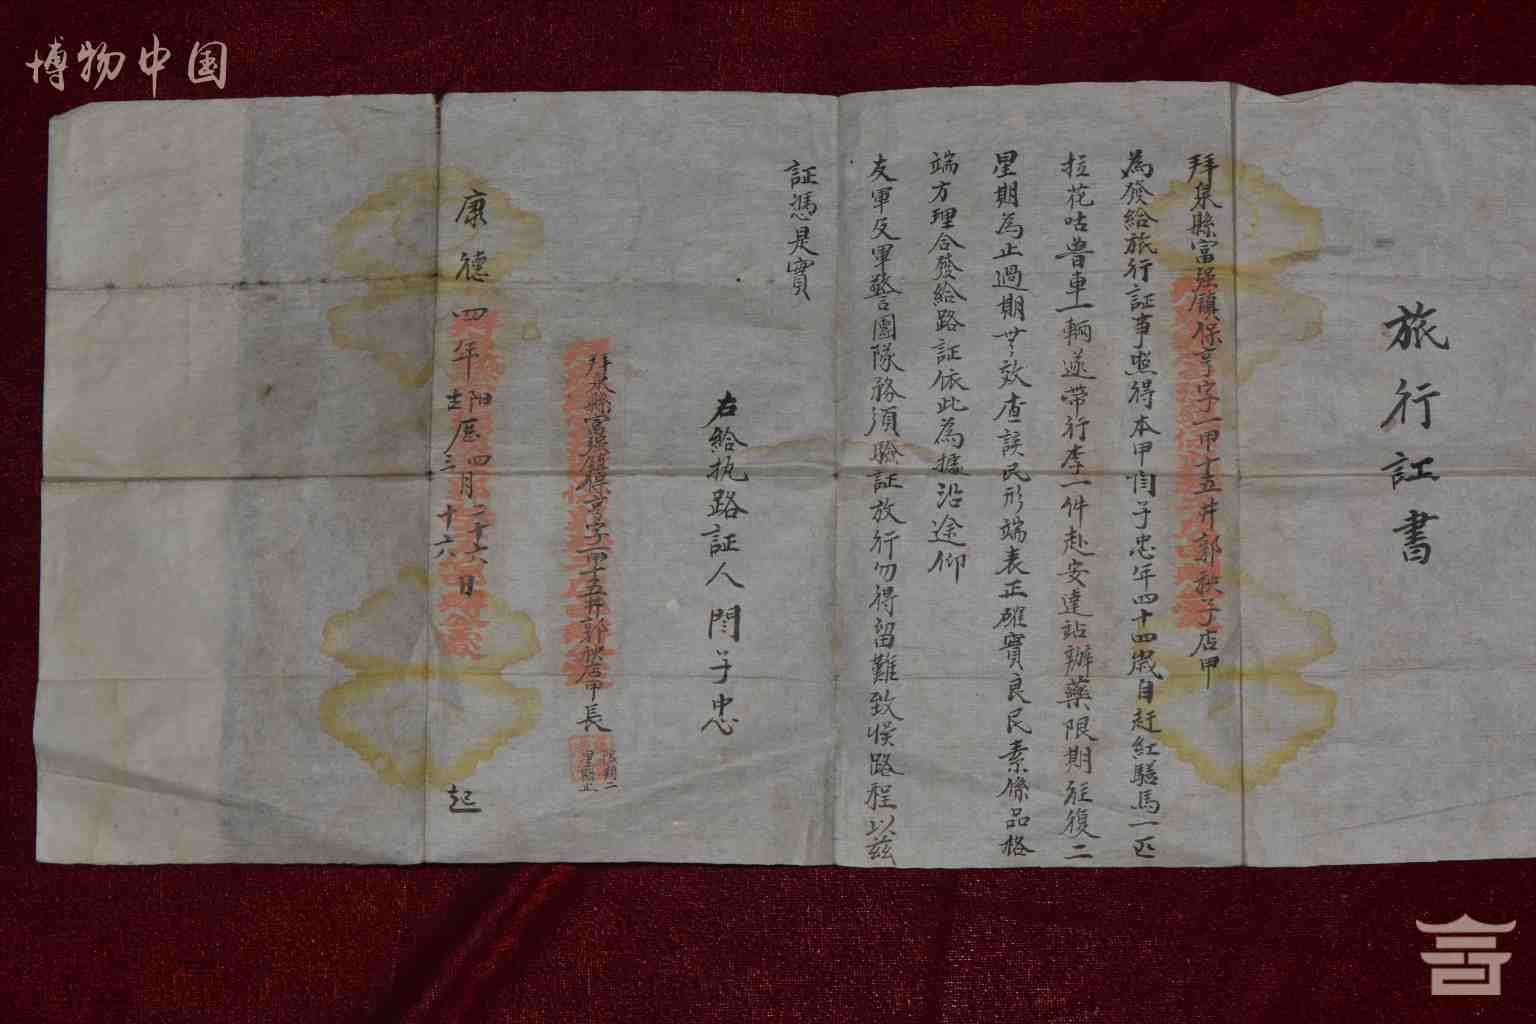 博物中国
旅行証書
拜泉縣富强鎮保亨字一甲十五井郭秧子店甲
為發給旅行証事照得本甲閆子忠年四十四歲自赶紅騸馬一匹
拉花咕魯車一輛遂帶行李一件赴安達站辦藥限期往復二
星期為止過期無效查該民形端表正確實良民素係品格
端方理合發給路証依此為據沿途仰
友軍及軍警團隊務須驗証放行勿得留難致悞路程以茲
証憑是實
右給執路証人閆子忠
拜泉縣富强鎮保亨字一甲十五井郭秧店甲長
康德四年陽历四月二十六日
古三十六
起